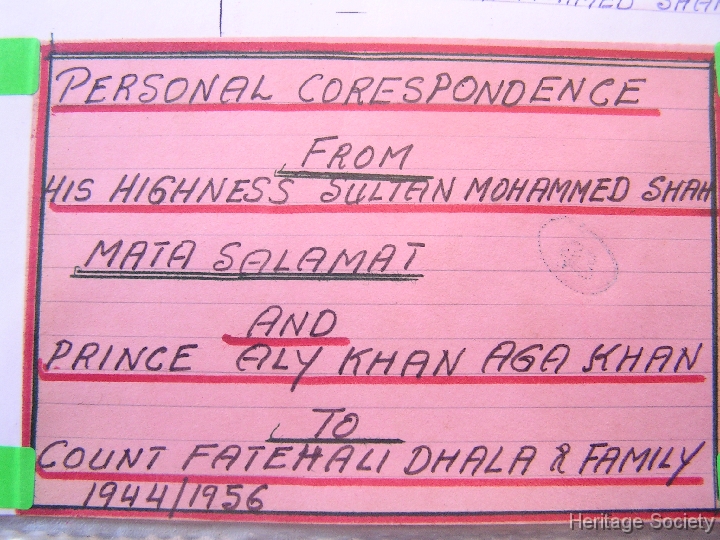 PERSONAL CORESPONDENCE
FROM
HIS HIGHNESS SULTAN MOHAMMED SHAH
MATA SALAMAT
AND
PRINCE ALY KHAN AGA KHAN
TO
COUNT FATEHALI DHALA & FAMILY
1944/1956
Heritage Society